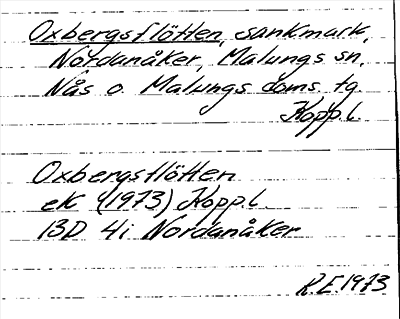 Oxbergsflötten, sankmark,
Nordanåker, Malungs sn,
Nås o Malungs doms. tg
Kopp.l.
Oxbergsflötten
ek (1973) Kopp.l.
13D 4i Nordanåker
R.E.1973